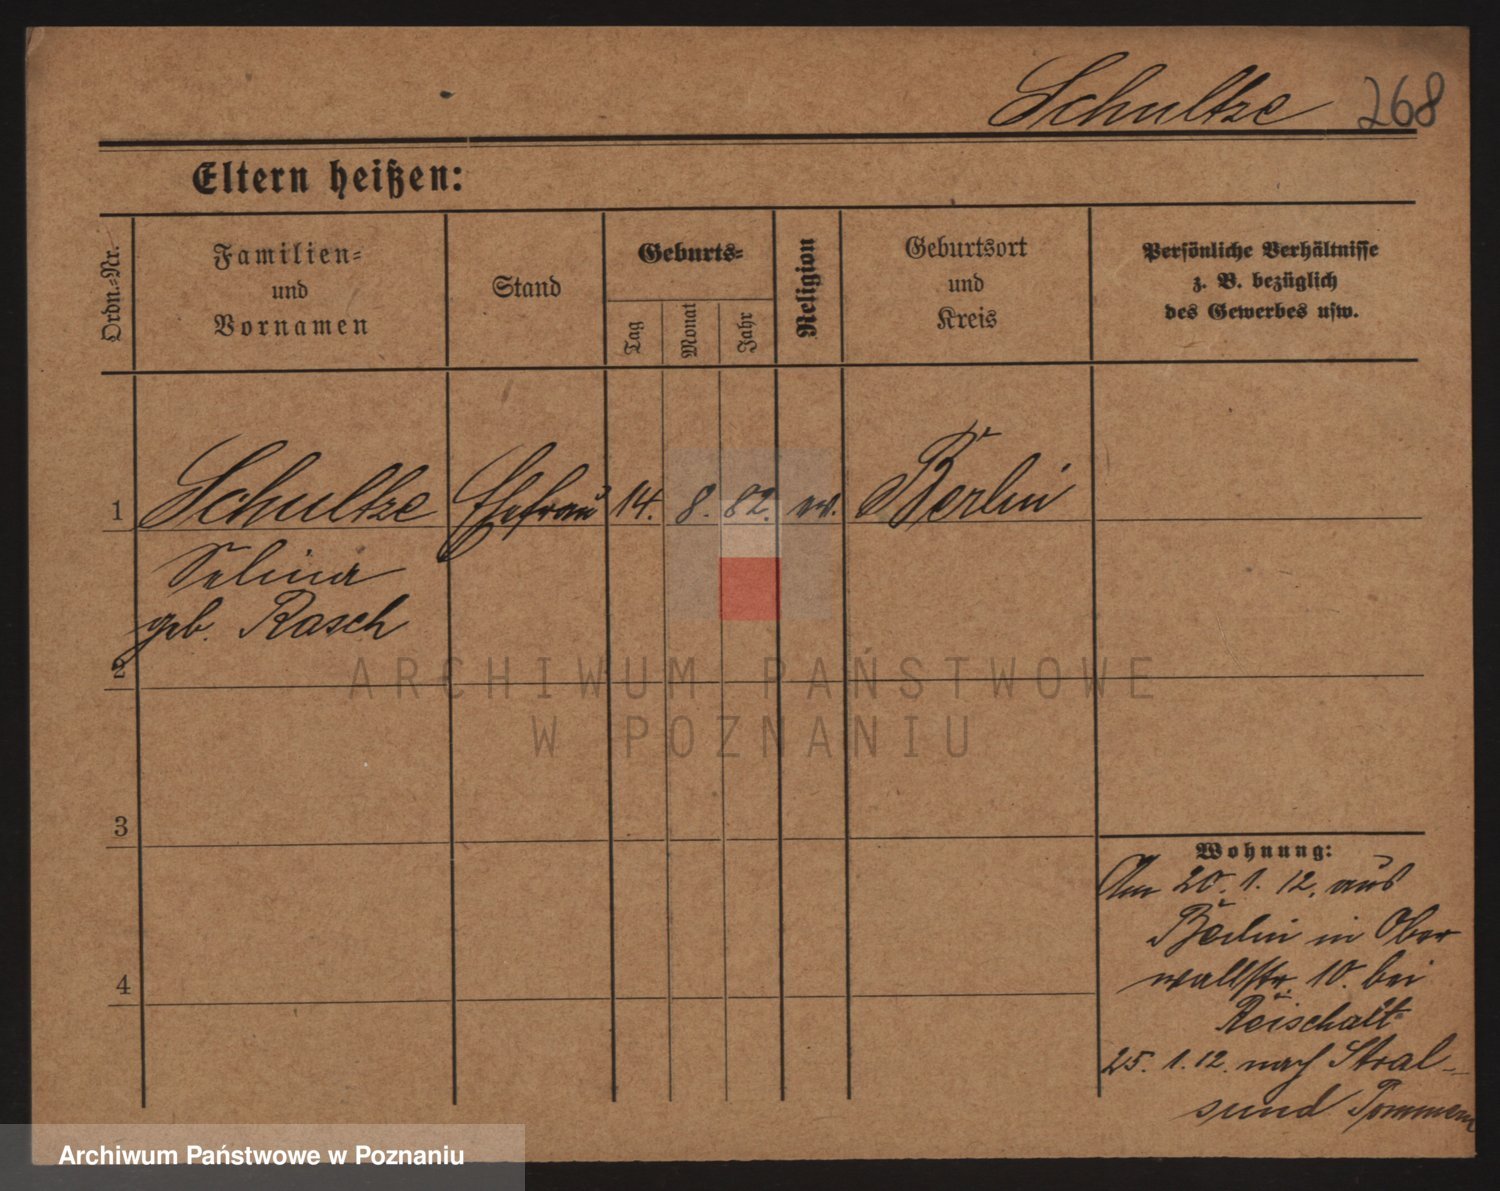 Schultze 268
Eltern heißen:
Ordn.-Nr.
Familien-
und
Vornamen
Stand
Geburts-
Tag
Monat
Jahr
Religion
Geburtsort
und
Kreis
Persönliche Verhältnisse
z. B. bezüglich
des Gewerbes usw.
1 Schultze Ehefrau 14. 8. 82. ev. Berlin
Selina
geb. Rasch
2
3
4
Wohnung:
Am 20. 1. 12. aus
Berlin in Ober
wallstr. 10. bei
25. 1. 12. nach Stral-
sund Pommern
ARCHIWUM PAŃSTWOWE
W POZNANIU
Archiwum Państwowe w Poznaniu